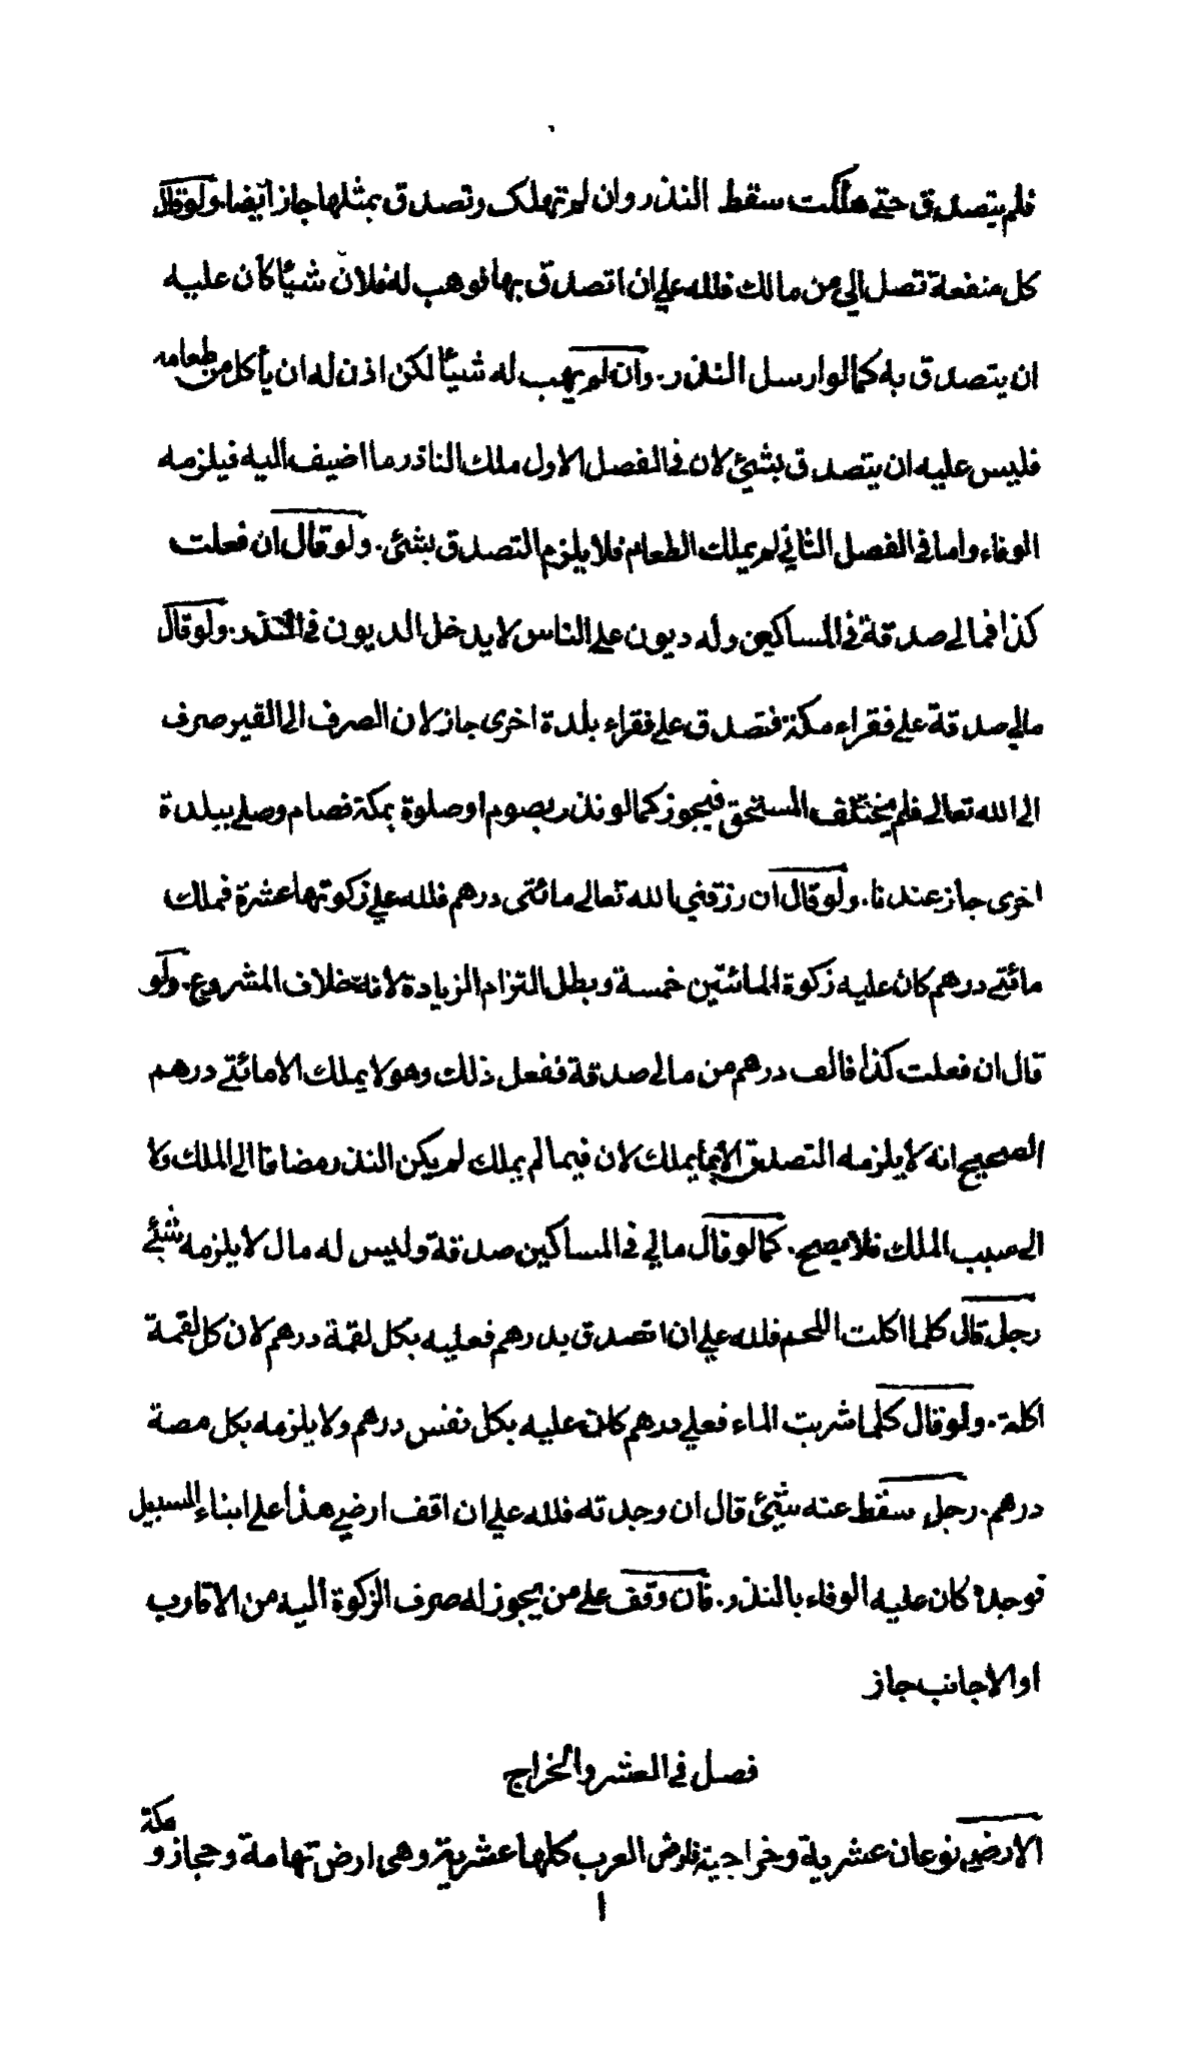 فلم يتصدق حتى هلكت سقط النذر وان لم تهلك وتصدق بمثلها جاز ايضا. ولو قال
كل منفعة تصل الي من مالك فلله علي ان اتصدق بها فوهب له فلان شيئا كان عليه
ان يتصدق به كما لو ارسل النذر. وان لم يهب له شيئا لكن اذن له ان يأكل من طعامه
فليس عليه ان يتصدق بشيئ لان في الفصل الاول ملك الناذر ما اضيف اليه فيلزمه
الوفاء واما في الفصل الثاني لم يملك الطعام فلا يلزم التصدق بشيئ. ولو قال ان فعلت
كذا فمالي صدقة في المساكين وله ديون على الناس لا يدخل الديون في النذر. ولو قال
مالي صدقة على فقراء مكة فتصدق على فقراء بلدة اخرى جاز لان الصرف الى الفقير صرف
الى الله تعالى فلم يختلف المستحق فيجوز كما لو نذر بصوم او صلوة بمكة فصام وصلى ببلدة
اخرى جاز عندنا. ولو قال ان رزقني الله تعالى مائتى درهم فلله علي زكوتها عشرة فملك
مائتي درهم كان عليه زكوة المائتين خمسة وبطل التزام الزيادة لانه خلاف المشروع. ولو
قال ان فعلت كذا فالف درهم من مالي صدقة ففعل ذلك وهو لا يملك الا مائتي درهم
الصحيح انه لا يلزمه التصدق الا بما يملك لان فيما لم يملك لم يكن النذر مضافا الى الملك ولا
الى سبب الملك فلا يصح. كما لو قال مالي في المساكين صدقة وليس له مال لا يلزمه شيئ
رجل قال كلما اكلت اللحم فلله علي ان اتصدق بدرهم فعليه بكل لقمة درهم لان كل لقمة
اكلة. ولو قال كلما شربت الماء فعلي درهم كان عليه بكل نفس درهم ولا يلزمه بكل مصة
درهم. رجل سقط عنه شيئ قال ان وجدته فلله علي ان اقف ارضي هذا على ابناء السبيل
فوجده كان عليه الوفاء بالنذر. فان وقف على من يجوز له صرف الزكوة اليه من الاقارب
او الاجانب جاز
فصل في العشر والخراج
الارضي نوعان عشرية وخراجية فارض العرب كلها عشرية وهى ارض تهامة وحجاز و مكة
ا